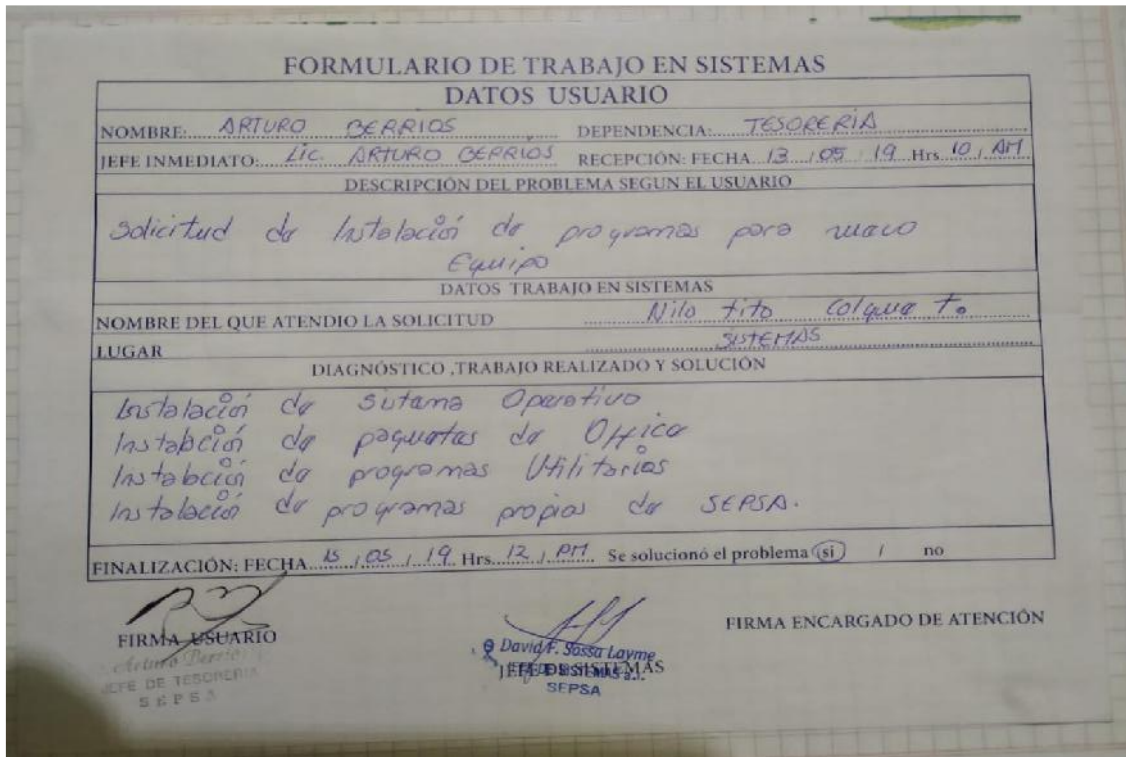 FORMULARIO DE TRABAJO EN SISTEMAS
DATOS USUARIO
NOMBRE: ARTURO BERRIOS DEPENDENCIA: TESORERIA
JEFE INMEDIATO: Lic. ARTURO BERRIOS RECEPCIÓN: FECHA 13 / 05 / 19 Hrs 10 / AM
DESCRIPCIÓN DEL PROBLEMA SEGUN EL USUARIO
Solicitud de Instalación de programas para nuevo
Equipo
DATOS TRABAJO EN SISTEMAS
NOMBRE DEL QUE ATENDIO LA SOLICITUD Nilo tito Colque
LUGAR SISTEMAS
DIAGNÓSTICO ,TRABAJO REALIZADO Y SOLUCIÓN
Instalación de Sistema Operativo
Instalación de paquetes de Office
Instalación de programas Utilitarios
Instalación de programas propios de SEPSA.
FINALIZACIÓN: FECHA 15 / 05 / 19 Hrs 12 / PM Se solucionó el problema si / no
FIRMA ENCARGADO DE ATENCIÓN
FIRMA USUARIO
Arturo Berrios
JEFE DE TESORERIA
SEPSA
David F. Sossa Layme
JEFE DE SISTEMAS
JEFE DE SISTEMAS a.i.
SEPSA